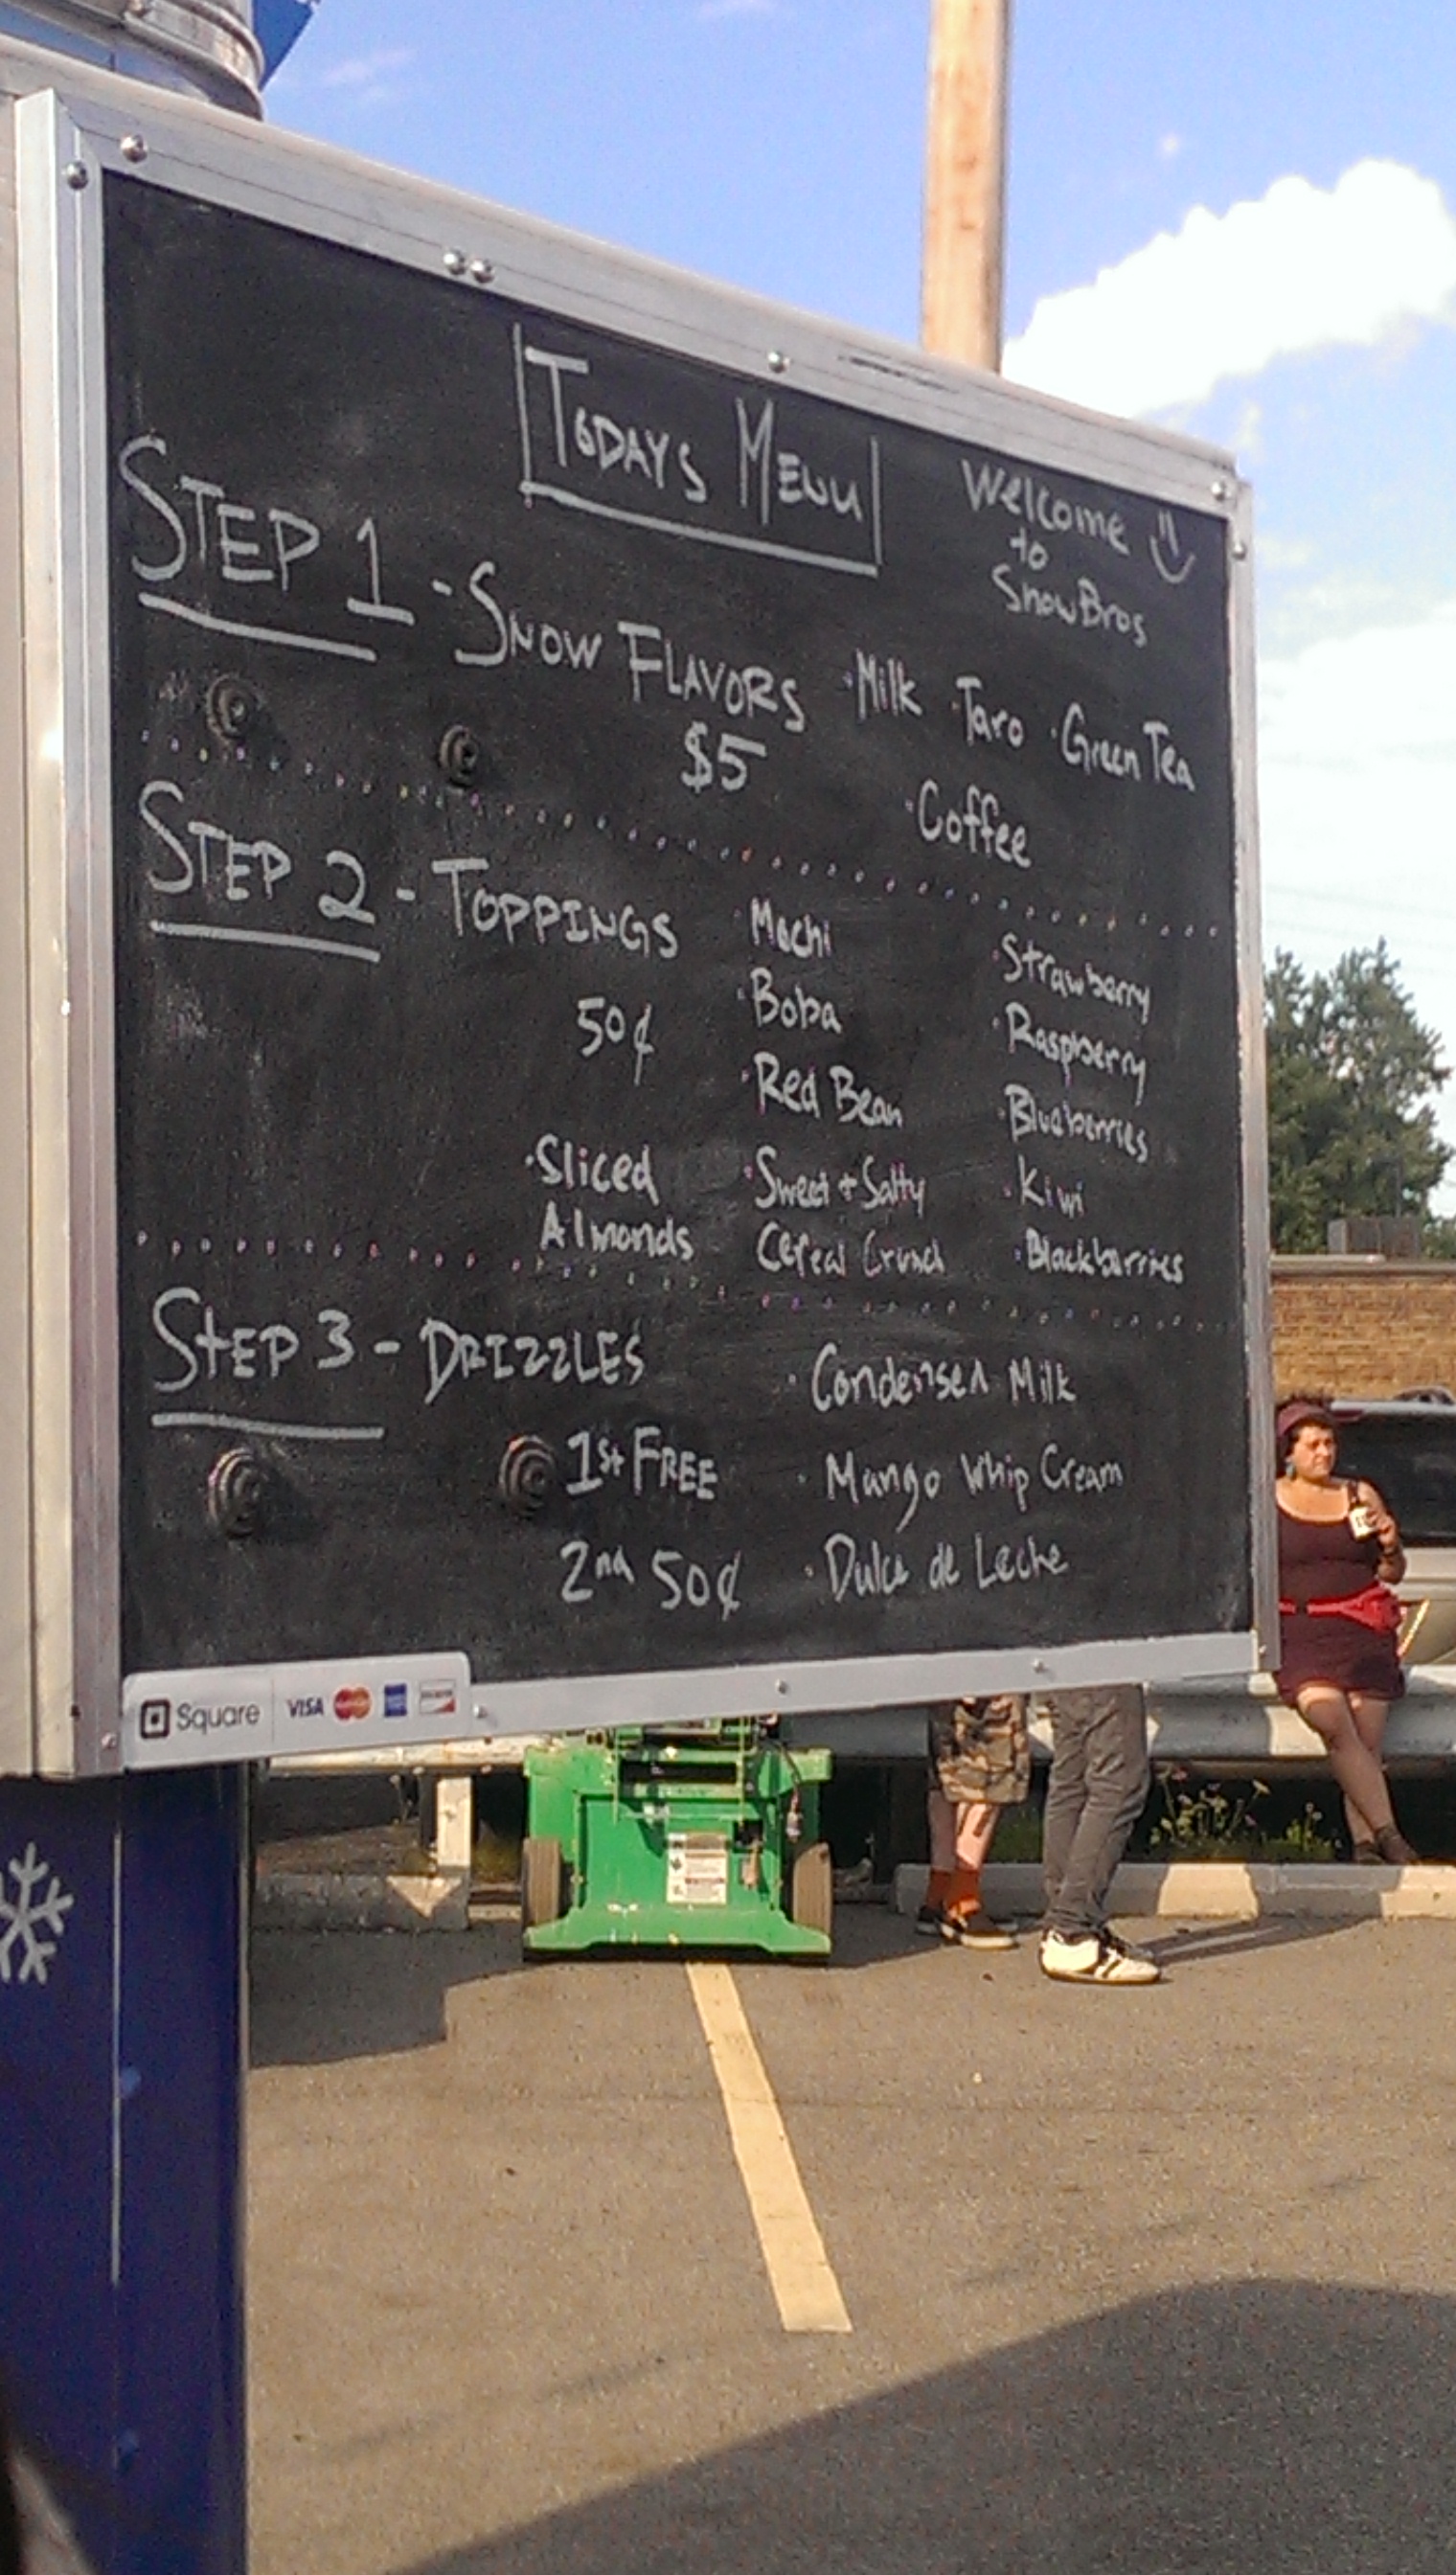 TODAYS MENU
Welcome
to
SnowBros
STEP 1 - SNOW FLAVORS
$5
· Milk · Taro · Green Tea
· Coffee
STEP 2 - TOPPINGS
50¢
· Mochi
· Boba
· Red Bean
· Sweet + Salty
Cereal Crunch
· Sliced
Almonds
· Strawberry
· Raspberry
· Blueberries
· Kiwi
· Blackberries
STEP 3 - DRIZZLES
1st FREE
2nd 50¢
· Condensed Milk
· Mango Whip Cream
· Dulce de Leche
Square VISA